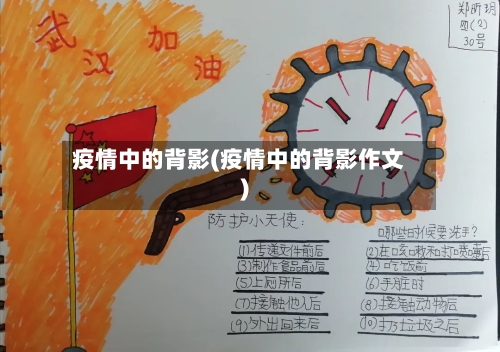 郑昕玥
四(2)
30号
武汉加油
疫情中的背影(疫情中的背影作文
)
防护小天使:
哪些时候要洗手?
(1)传递文件前后
(2)在咳嗽和打喷嚏后
(3)制作食品前后
(4)吃饭前
(5)上厕所后
(6)手脏时
(7)接触他人后
(8)接触动物后
(9)外出回来后
(10)扔垃圾之后